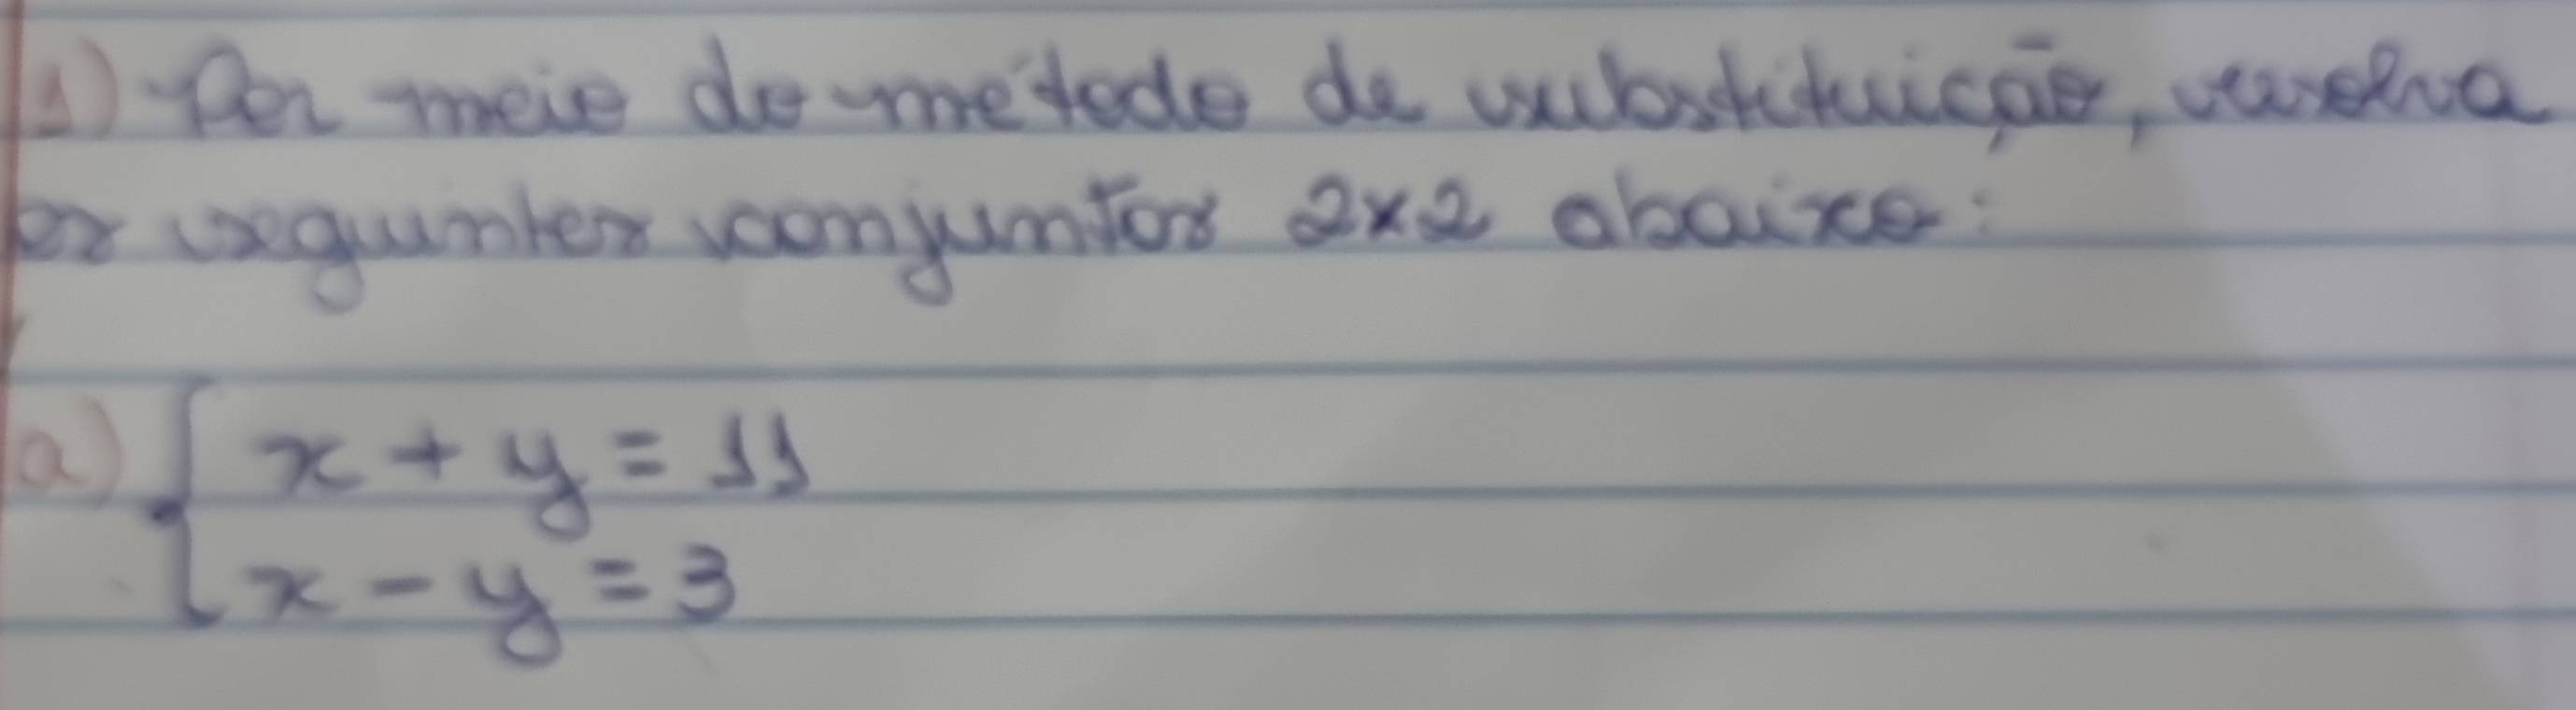 1) Por meio do método de substituição, resolva
os seguintes conjuntos 2x2 abaixo:
a) { x + y = 11
x - y = 3